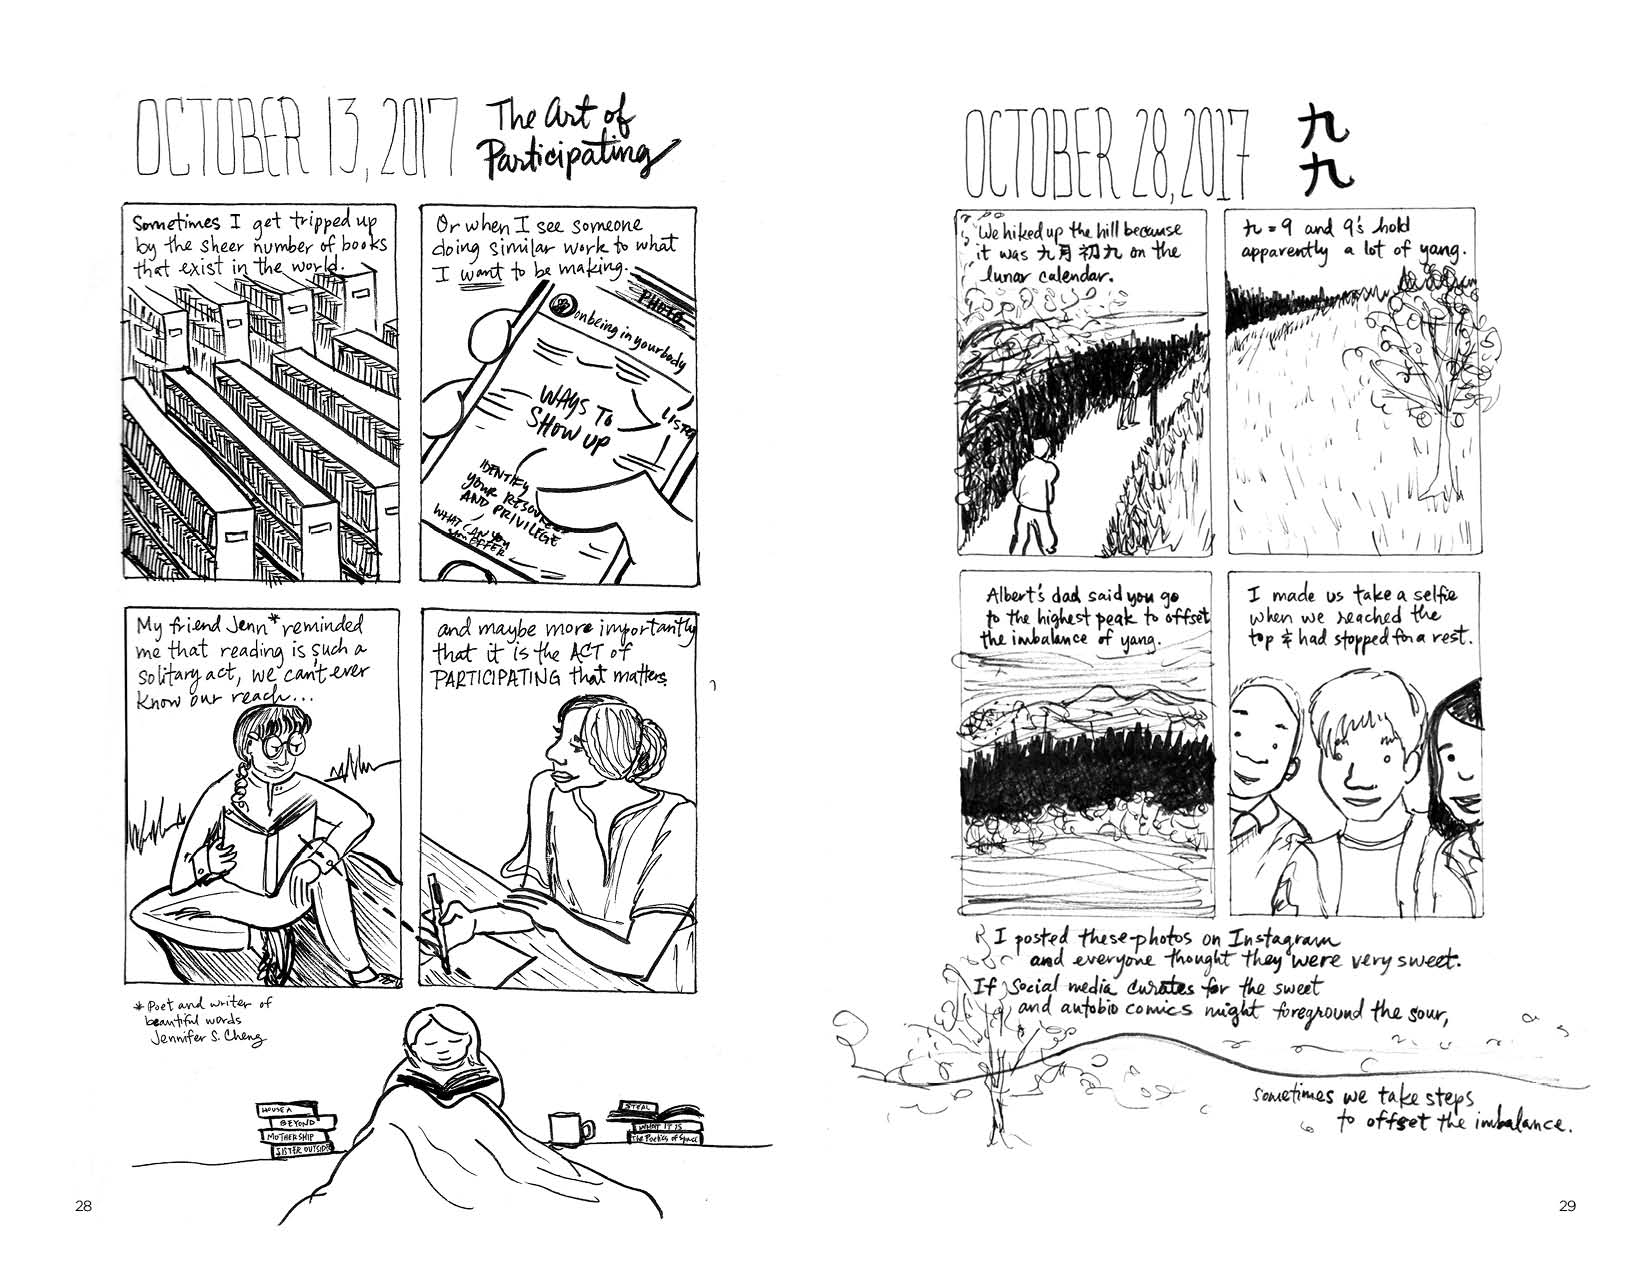 OCTOBER 13, 2017
The Art of
Participating
Sometimes I get tripped up
by the sheer number of books
that exist in the world.
Or when I see someone
doing similar work to what
I want to be making.
PHOTO
onbeinginyourbody
WAYS TO
SHOW UP
IDENTIFY
YOUR RESOURCES
AND PRIVILEGE
WHAT CAN YOU
YOU OFFER
My friend Jenn* reminded
me that reading is such a
solitary act, we can't ever
know our reach...
and maybe more importantly
that it is the ACT of
PARTICIPATING that matters.
* Poet and writer of
beautiful words
Jennifer S. Cheng
HOUSE A
BEYOND
MOTHERSHIP
SISTER OUTSIDER
STEAL
WHAT IT IS
The Poetics of Space
28
OCTOBER 28, 2017
九
九
We hiked up the hill because
it was 九月初九 on the
lunar calendar.
九 = 9 and 9's hold
apparently a lot of yang.
Albert's dad said you go
to the highest peak to offset
the imbalance of yang.
I made us take a selfie
when we reached the
top & had stopped for a rest.
I posted these photos on Instagram
and everyone thought they were very sweet.
If social media curates for the sweet
and autobio comics might foreground the sour,
sometimes we take steps
to offset the imbalance.
29